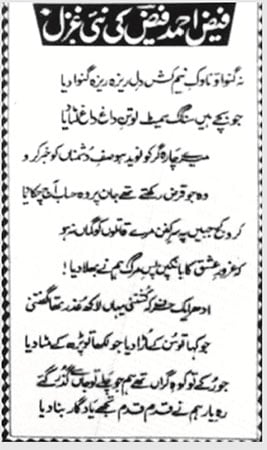 فیض احمد فیض کی نئی غزل
نہ گنواؤ ناوک نیم کش دل ریزہ ریزہ گنوا دیا
جو بچے ہیں سنگ سمیٹ لو تن داغ داغ لٹا دیا
میرے چارہ گر کو نوید ہو صف دشمناں کو خبر کرو
وہ جو قرض رکھتے تھے جان پر وہ حساب آج چکا دیا
کرو کج جبیں پہ سر کفن مرے قاتلوں کو گماں نہ ہو
کہ غرور عشق کا بانکپن پس مرگ ہم نے بھلا دیا!
ادھر ایک حرف کہ کشتنی یہاں لاکھ عذر تھا گفتنی
جو کہا تو سن کے اڑا دیا جو لکھا تو پڑھ کے مٹا دیا
جو رکے تو کوہ گراں تھے ہم جو چلے تو جاں سے گذر گئے
رہ یار ہم نے قدم قدم تجھے یادگار بنا دیا